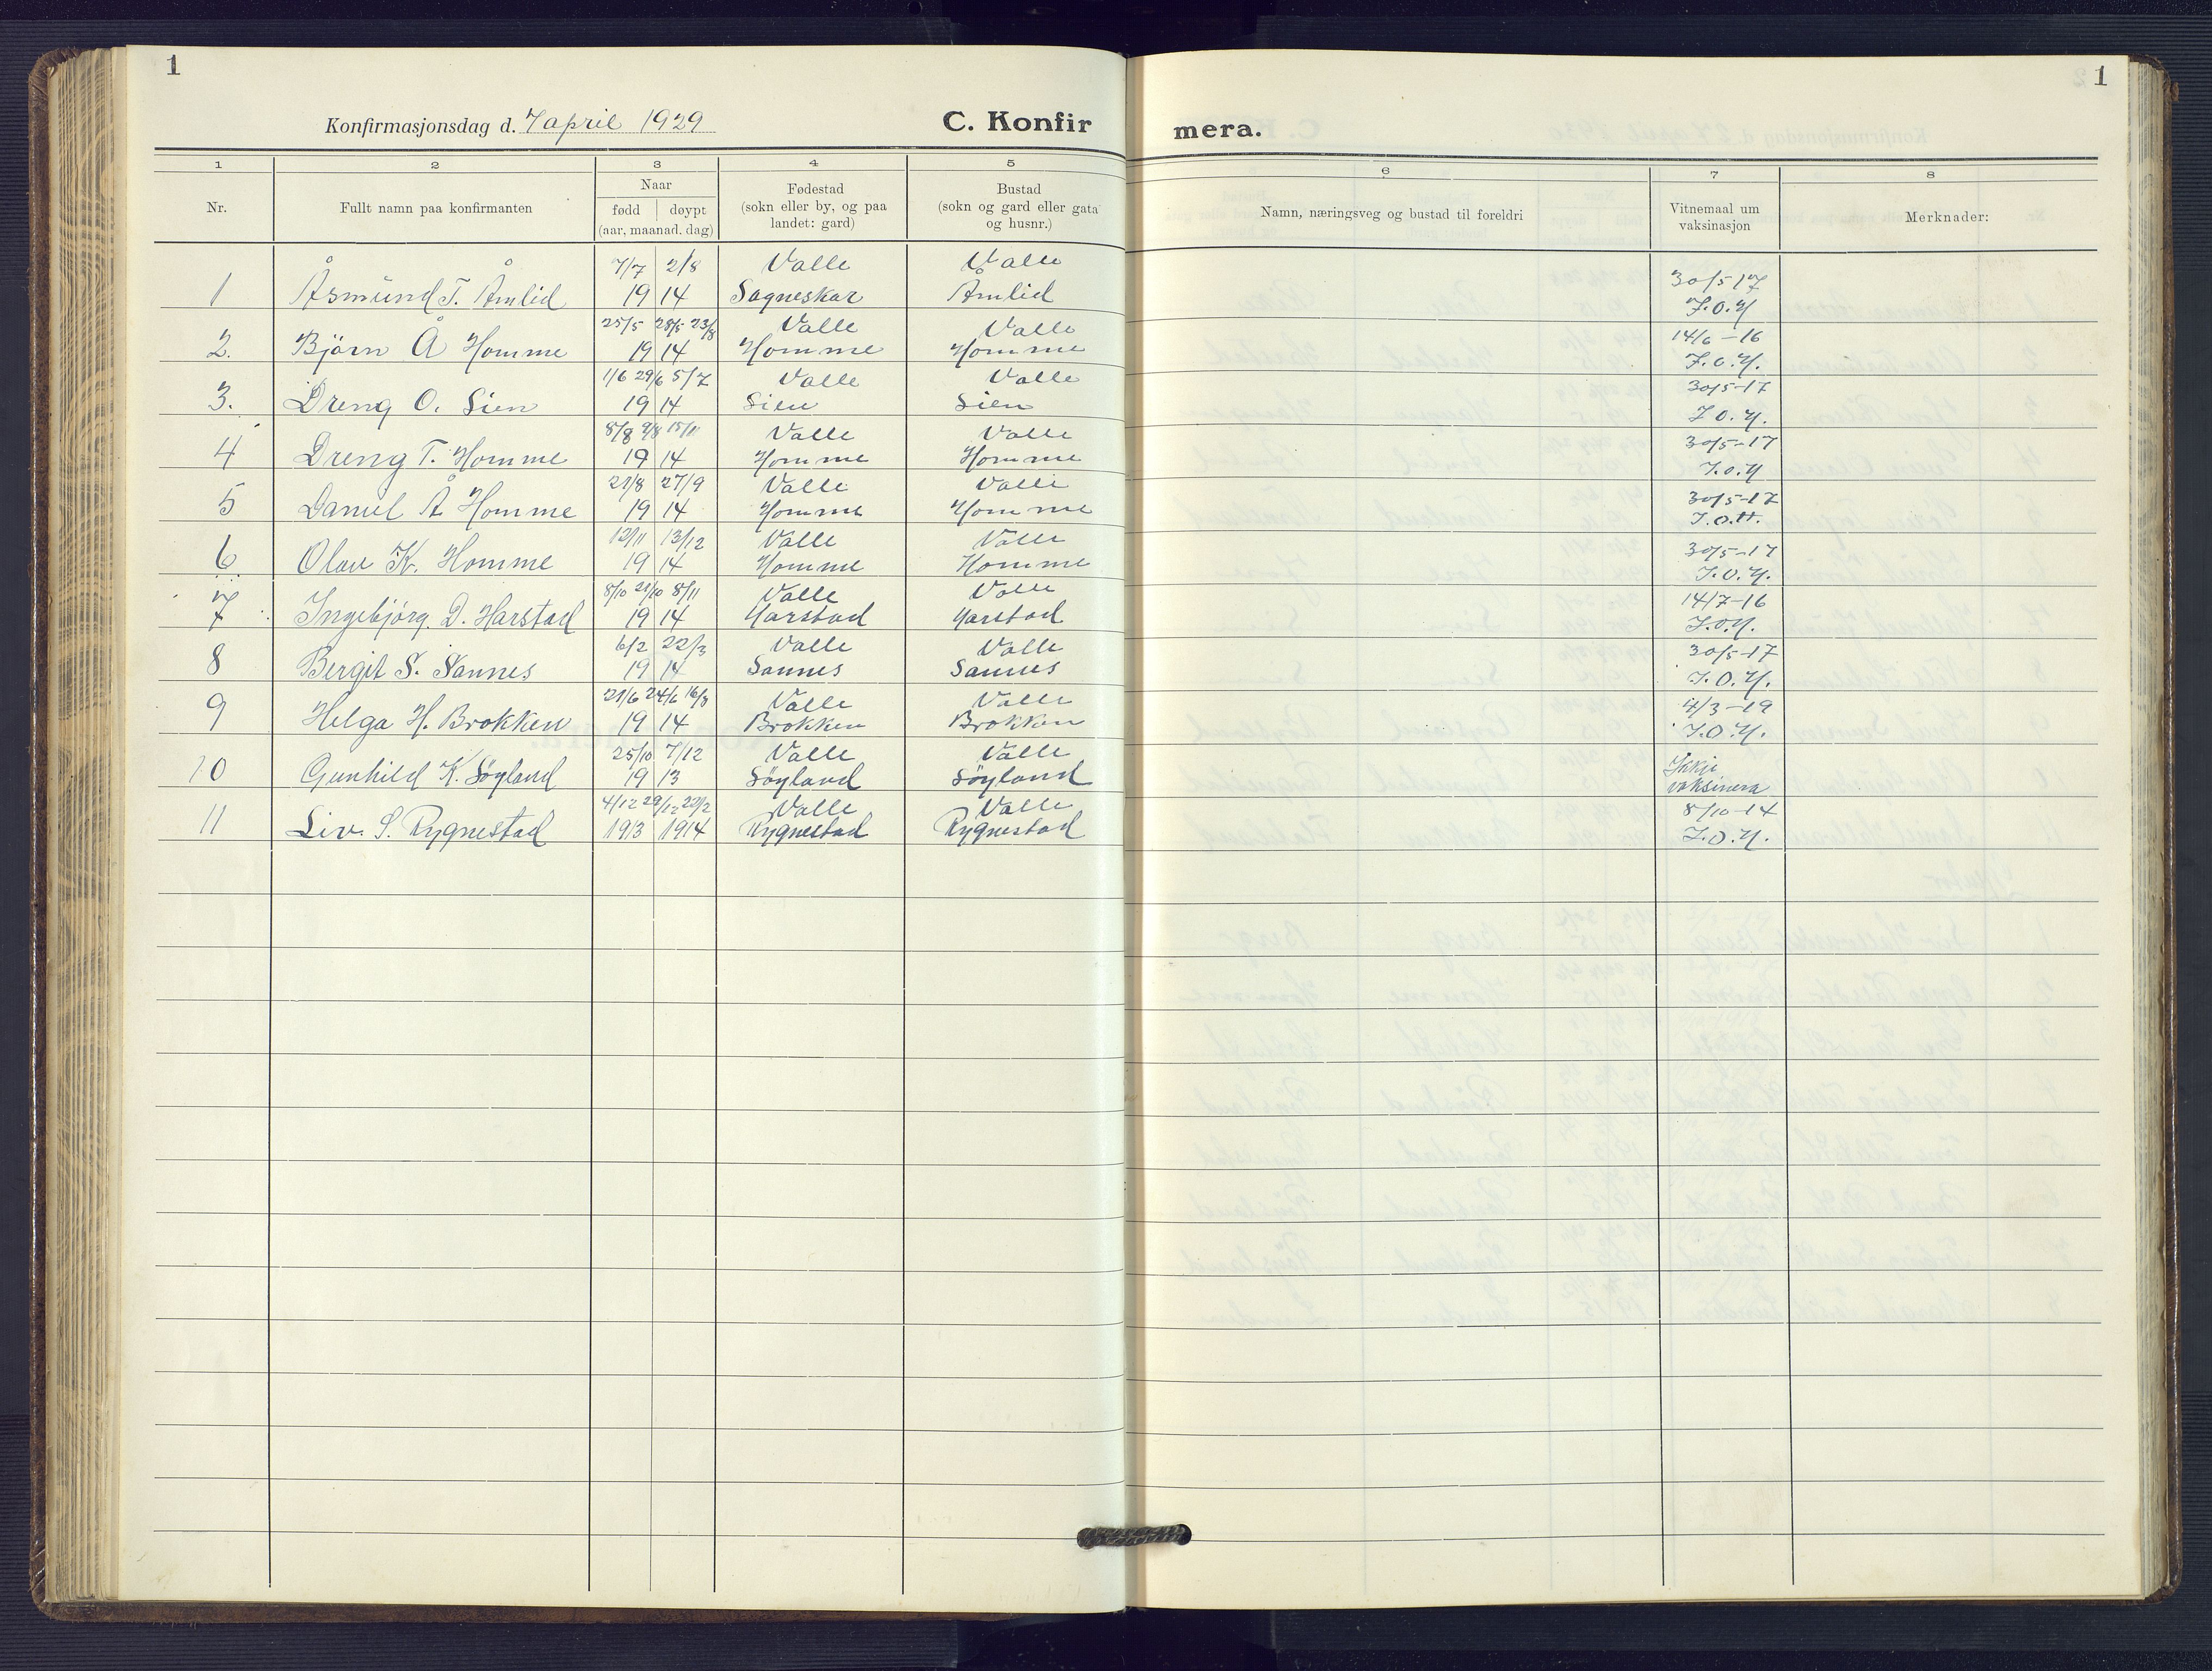 1
Konfirmasjonsdag d. 7 april 1929
C. Konfir
mera.
1
1 2 3 4 5 6 7 8
Nr.
Fullt namn paa konfirmanten
Naar
fødd | døypt
(aar, maanad. dag)
Fødestad
(sokn eller by, og paa
landet: gard)
Bustad
(sokn og gard eller gata
og husnr.)
Namn, næringsveg og bustad til foreldri
Vitnemaal um
vaksinasjon
Merknader:
7/7 2/8 Valle Valle 30/5-17
1 Åsmund T. Åmlid 19 14 Sagneskar Åmlid J.O.H
25/5 28/5 23/8 Valle Valle 14/6-16
2. Björn Å Homme 19 14 Homme Homme J.O.H.
1/6 29/6 5/7 Valle Valle 30/5-17
3. Dreng O. Sien 19 14 Sien Sien J.O.H.
8/8 9/8 15/11 Valle Valle 30/5-17
4 Dreng T. Homme 19 14 Homme Homme J.O.H
21/8 27/9 Valle Valle 30/5-17
5 Daniel Å Homme 19 14 Homme Homme J.O.H.
12/11 13/12 Valle Valle 30/5-17
6 Olav K. Homme 19 14 Homme Homme J.O.H.
8/10 21/10 8/11 Valle Valle 14/7-16
7 Ingebjörg D. Harstad 19 14 Harstad Harstad J.O.H.
6/2 22/3 Valle Valle 30/5-17
8 Bergit S. Sannes 19 14 Sannes Sannes J.O.H.
21/6 24/6 16/8 Valle Valle 4/3-19
9 Helga H. Brokken 19 14 Brokken Brokken J.O.H.
25/10 7/12 Valle Valle Ikkje
10 Gunhild K. Söyland 19 13 Söyland Söyland vaksinera
4/12 29/12 22/2 Valle Valle 8/10-14
11 Liv. S. Rygnestad 1913 1914 Rygnestad Rygnestad J.O.H.